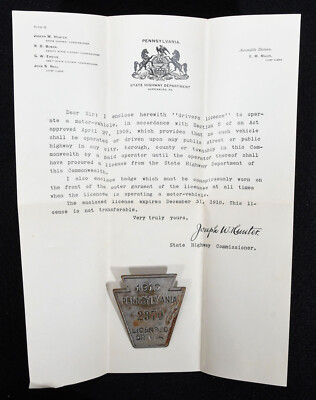 JOSEPH W. HUNTER
STATE HIGHWAY COMMISSIONER
PENNSYLVANIA
STATE HIGHWAY DEPARTMENT
HARRISBURG, PA.
Automobile Division
CHIEF CLERK
Dear Sir: I enclose herewith "drivers license" to oper-
ate a motor-vehicle, in accordance with Section 8 of an Act
approved April 27, 1909, which provides that no such vehicle
shall be operated or driven upon any public street or public
highway in any city, borough, county or township in this Common-
monwealth by a paid operator until the operator thereof shall
have procured a license from the State Highway Department of
this Commonwealth.
I also enclose badge which must be conspicuously worn on
the front of the outer garment of the licensee at all times
when the licensee is operating a motor-vehicle.
The enclosed license expires December 31, 1910. This li-
cense is not transferable.
Very truly yours,
Joseph W. Hunter
State Highway Commissioner.
1910
PENNSYLVANIA
LICENSED